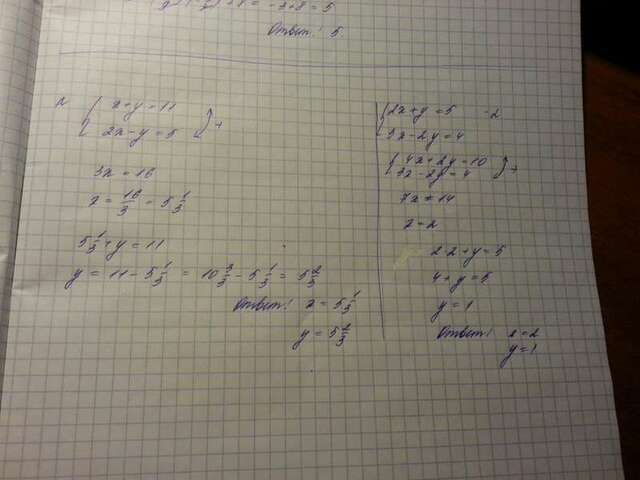 = -3+8 = 5
Ответ: 5.
x+y=11
2x-y=5 +
3x=16
x=16/3=5 1/3
5 1/3+y=11
y=11-5 1/3=10 3/3-5 1/3=5 2/3
Ответ: x=5 1/3
y=5 2/3
2x+y=5 ·2
3x-2y=4
4x+2y=10
3x-2y=4 +
7x=14
x=2
2·2+y=5
4+y=5
y=1
Ответ: x=2
y=1